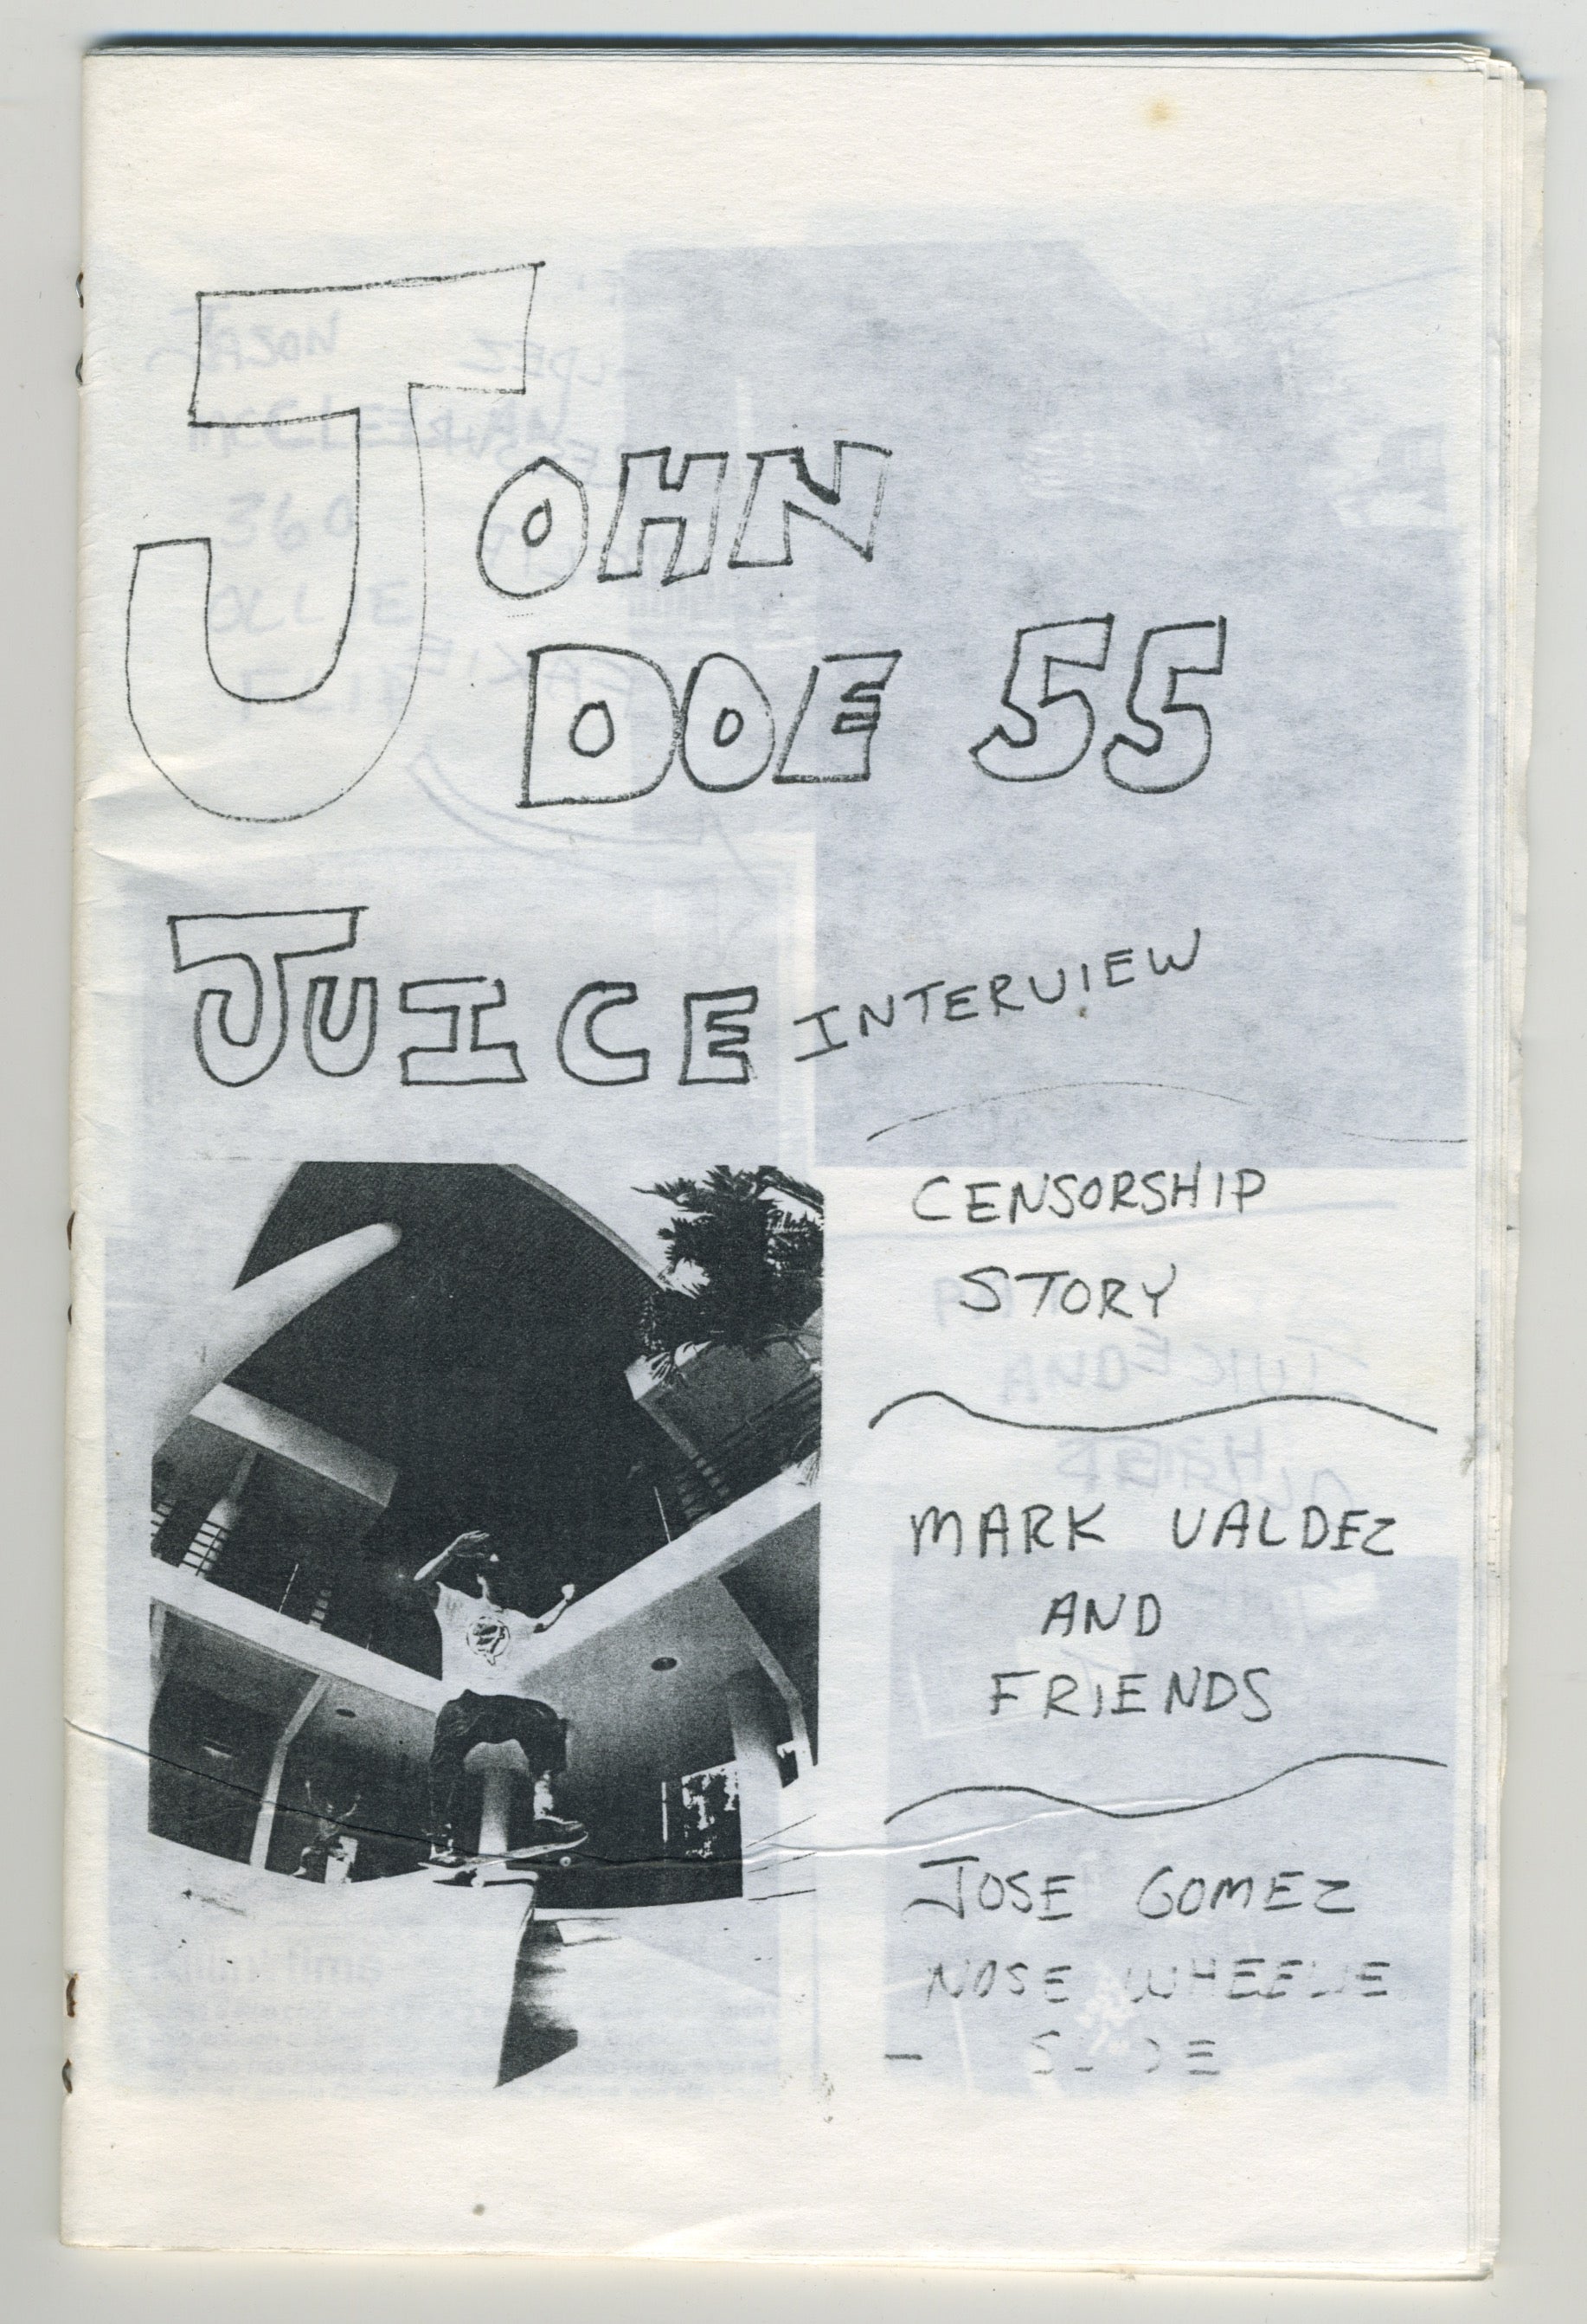 JOHN
DOE 55
JUICE INTERVIEW
CENSORSHIP
STORY
MARK VALDEZ
AND
FRIENDS
JOSE GOMEZ
NOSE WHEELIE
- SLIDE
JASON
360
OLLIE